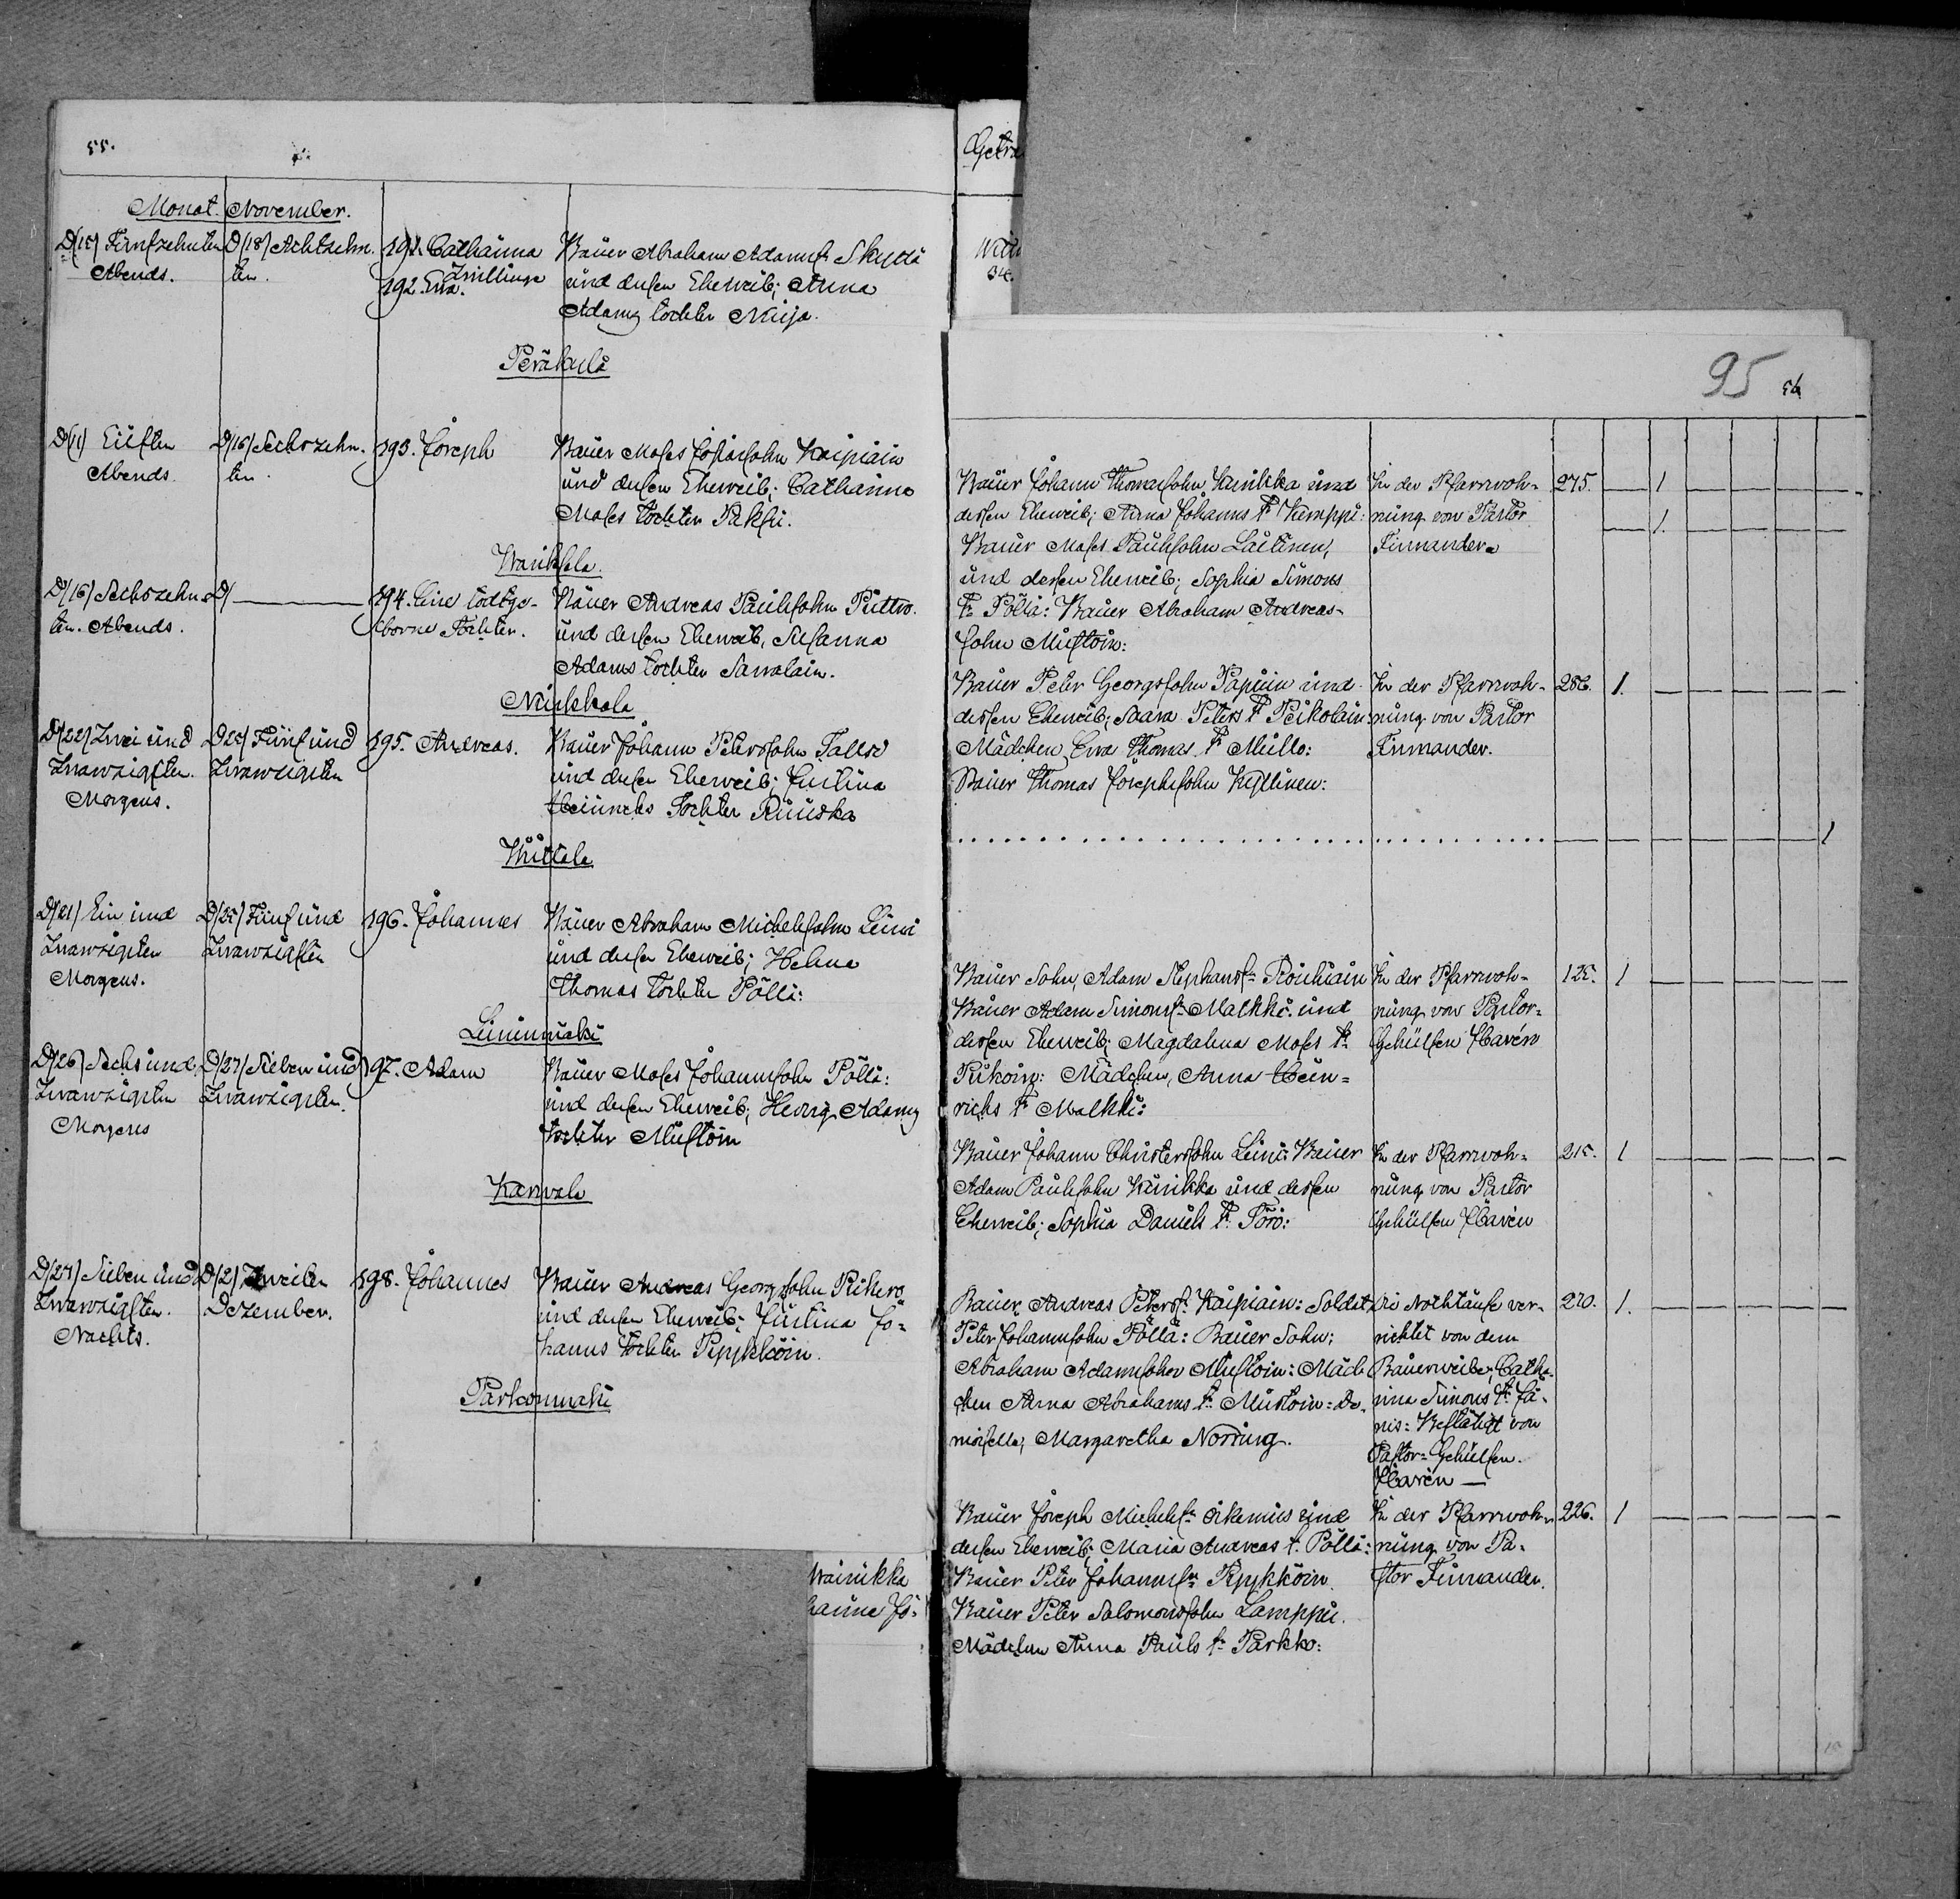 55.
Monat November.
D/15/ Fünfzehnten
Abends.
D/18/ Achtzehn-
ten.
191. Catharina
Zwillinge
192. Ewa.
Bauer Abraham Adamss. Skyttä
und dessen Eheweib; Anna
Adams tochter Kuija.
Peräkylä
D/11/ Eilften
Abends.
D/16/ Sechszehn-
ten.
193. Joseph
Bauer Moses Josiassohn Kaipiain
und dessen Eheweib; Catharina
Moses tochter Pakki.
Warikfela.
D/16/ Sechszehn-
ten. Abends.
D/
194. Eine todtge-
borne Tochter.
Bauer Andreas Paulssohn Puttro.
und dessen Eheweib, Susanna
Adams tochter Sawolain.
Nikkola
D/22/ Zwei und
Zwawzigsten.
Morgens.
D/25/ Fünf und
Zwawzigsten
195. Andreas.
Bauer Johann Peterssohn Talko
und dessen Eheweib; Justina
Heinrichs Tochter Ruuska
Huttola
D/21/ Ein und
Zwawzigsten
Morgens.
D/25/ Fünf und
Zwawzigsten
196. Johannes
Bauer Abraham Michelssohn Leini
und dessen Eheweib; Helena
Thomas tochter Pöllä:
Leinimäki
D/26/ Sechs und
Zwawzigsten
Morgens
D/27/ Sieben und
Zwawzigsten.
197. Adam
Bauer Moses Johannssohn Pöllä:
und dessen Eheweib; Hedwig Adams
tochter Mustoin
Karwala
D/27/ Sieben und
Zwawzigsten.
Nachts.
D/2/ Zweiten
Dezember.
198. Johannes
Bauer Andreas Georgssohn
und dessen Eheweib; Justina Jo-
hanns tochter Pyykköin.
Parkonmäki
Wainikka
Getra
95
56.
Bauer Johann Thomassohn Kurikka und
dessen Eheweib; Anna Johanns T. Kemppi:
Bauer Moses Paulssohn Laitinen,
und dessen Eheweib; Sophia Simons
T. Pöllä: Bauer Abraham Andreas-
sohn Mustoin:
In der Pfarrwoh-
nung von Pastor
Finnander.
275. 1
1.
Bauer Peter Georgssohn Papuin und
dessen Eheweib; Saara Peters T. Peikolain:
Mädchen Ewa Thomas T. Mullo:
Bauer Thomas Josephssohn Kyllinen:
In der Pfarrwoh-
nung von Pastor
Finnander.
286. 1.
1
Bauer Sohn, Adam Stephanss.
Bauer Adam Simonss. Malkki und
dessen Eheweib; Magdalena Moses T.
Pikoin: Mädchen, Anna Hein-
richs T. Malkki:
In der Pfarrwoh-
nung von Pastor-
Gehülfen Havén
125. 1
Bauer Johann Christerssohn Leini: Bauer
Adam Paulssohn Kurikka und dessen
Eheweib; Sophia Daniels T. Törö:
In der Pfarrwoh-
nung von Pastor
Gehülfen Havén
215. 1
Bauer Andreas Peterss. Kaipiain: Soldat
Peter Johannssohn Pöllä: Bauer Sohn;
Abraham Adamssohn Mustoin: Mäd-
chen Anna Abrahams T. Mustoin: De-
moiselle; Margaretha Norring.
Die Nothtaufe ver-
richtet von dem
Bauerweibe; Catha-
rina Simons T. Jä-
nis: Bestätigt von
Pastor-Gehülfen.
Havén
270. 1.
Bauer Joseph Michelss. Oikemus und
dessen Eheweib; Maria Andreas T. Pöllä:
Bauer Peter Johannss. Pyykköin.
Bauer Peter Salomonssohn Lamppu.
Mädchen Anna Pauls T. Parkko:
In der Pfarrwoh-
nung von Pa-
stor Finnander.
226. 1